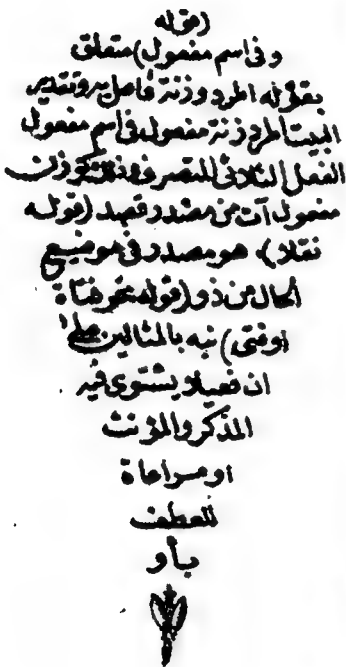 (قوله
وفى اسم مفعول) متعلق
بقوله اطرد وزنة فاعل به وتقدير
البيت اطرد زنة مفعول فى اسم مفعول
الفعل الثلاثى المتصرف وذلك كوزن
مفعول آت من مصدر قصد (قوله
نقلا) هو مصدر فى موضع
الحال من ذو (قوله نحو فتاة
اوفتى) نبه بالمثالين على
ان فعيلا يستوى فيه
المذكر والمؤنث
او مراعاة
للعطف
بأو